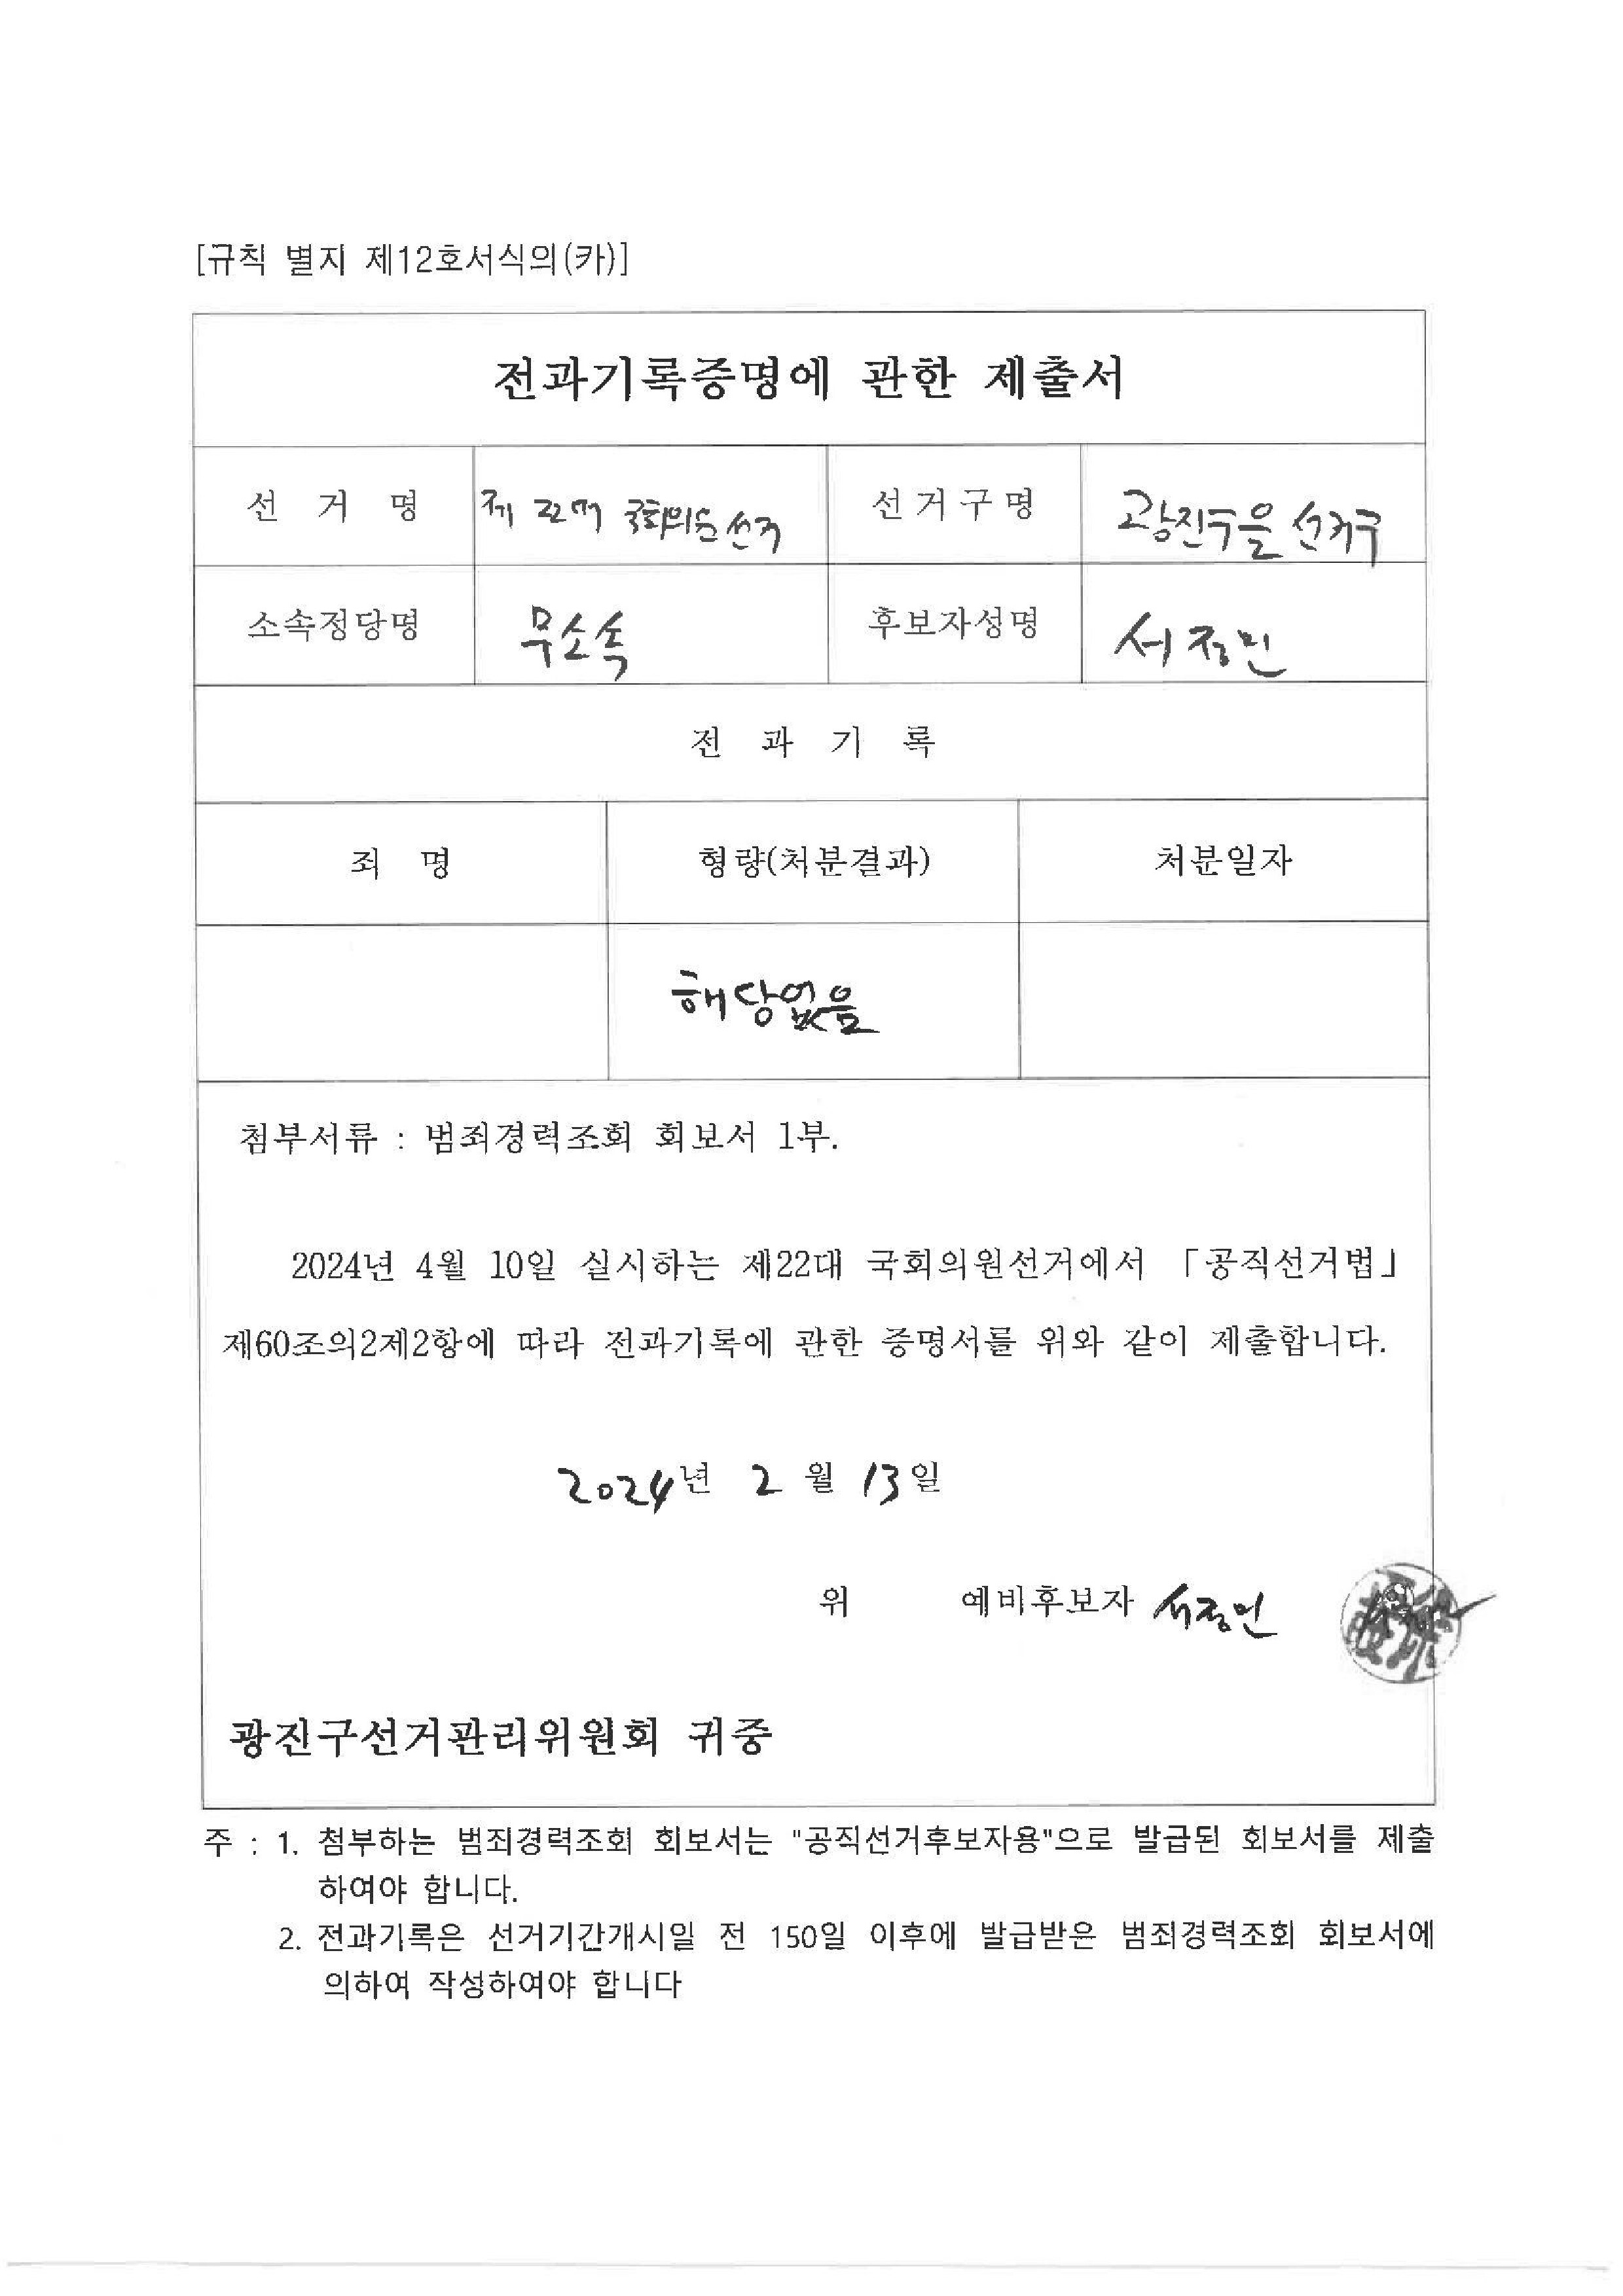 [규칙 별지 제12호서식의(카)]
전과기록증명에 관한 제출서
선 거 명 제 22대 국회의원 선거 선거구명 광진구을 선거구
소속정당명 무소속 후보자성명 서정민
전 과 기 록
죄 명 형량(처분결과) 처분일자
해당없음
첨부서류 : 범죄경력조회 회보서 1부.
2024년 4월 10일 실시하는 제22대 국회의원선거에서 「공직선거법」
제60조의2제2항에 따라 전과기록에 관한 증명서를 위와 같이 제출합니다.
2024년 2 월 13일
위 예비후보자 서정민
광진구선거관리위원회 귀중
주 : 1. 첨부하는 범죄경력조회 회보서는 "공직선거후보자용"으로 발급된 회보서를 제출
하여야 합니다.
2. 전과기록은 선거기간개시일 전 150일 이후에 발급받은 범죄경력조회 회보서에
의하여 작성하여야 합니다